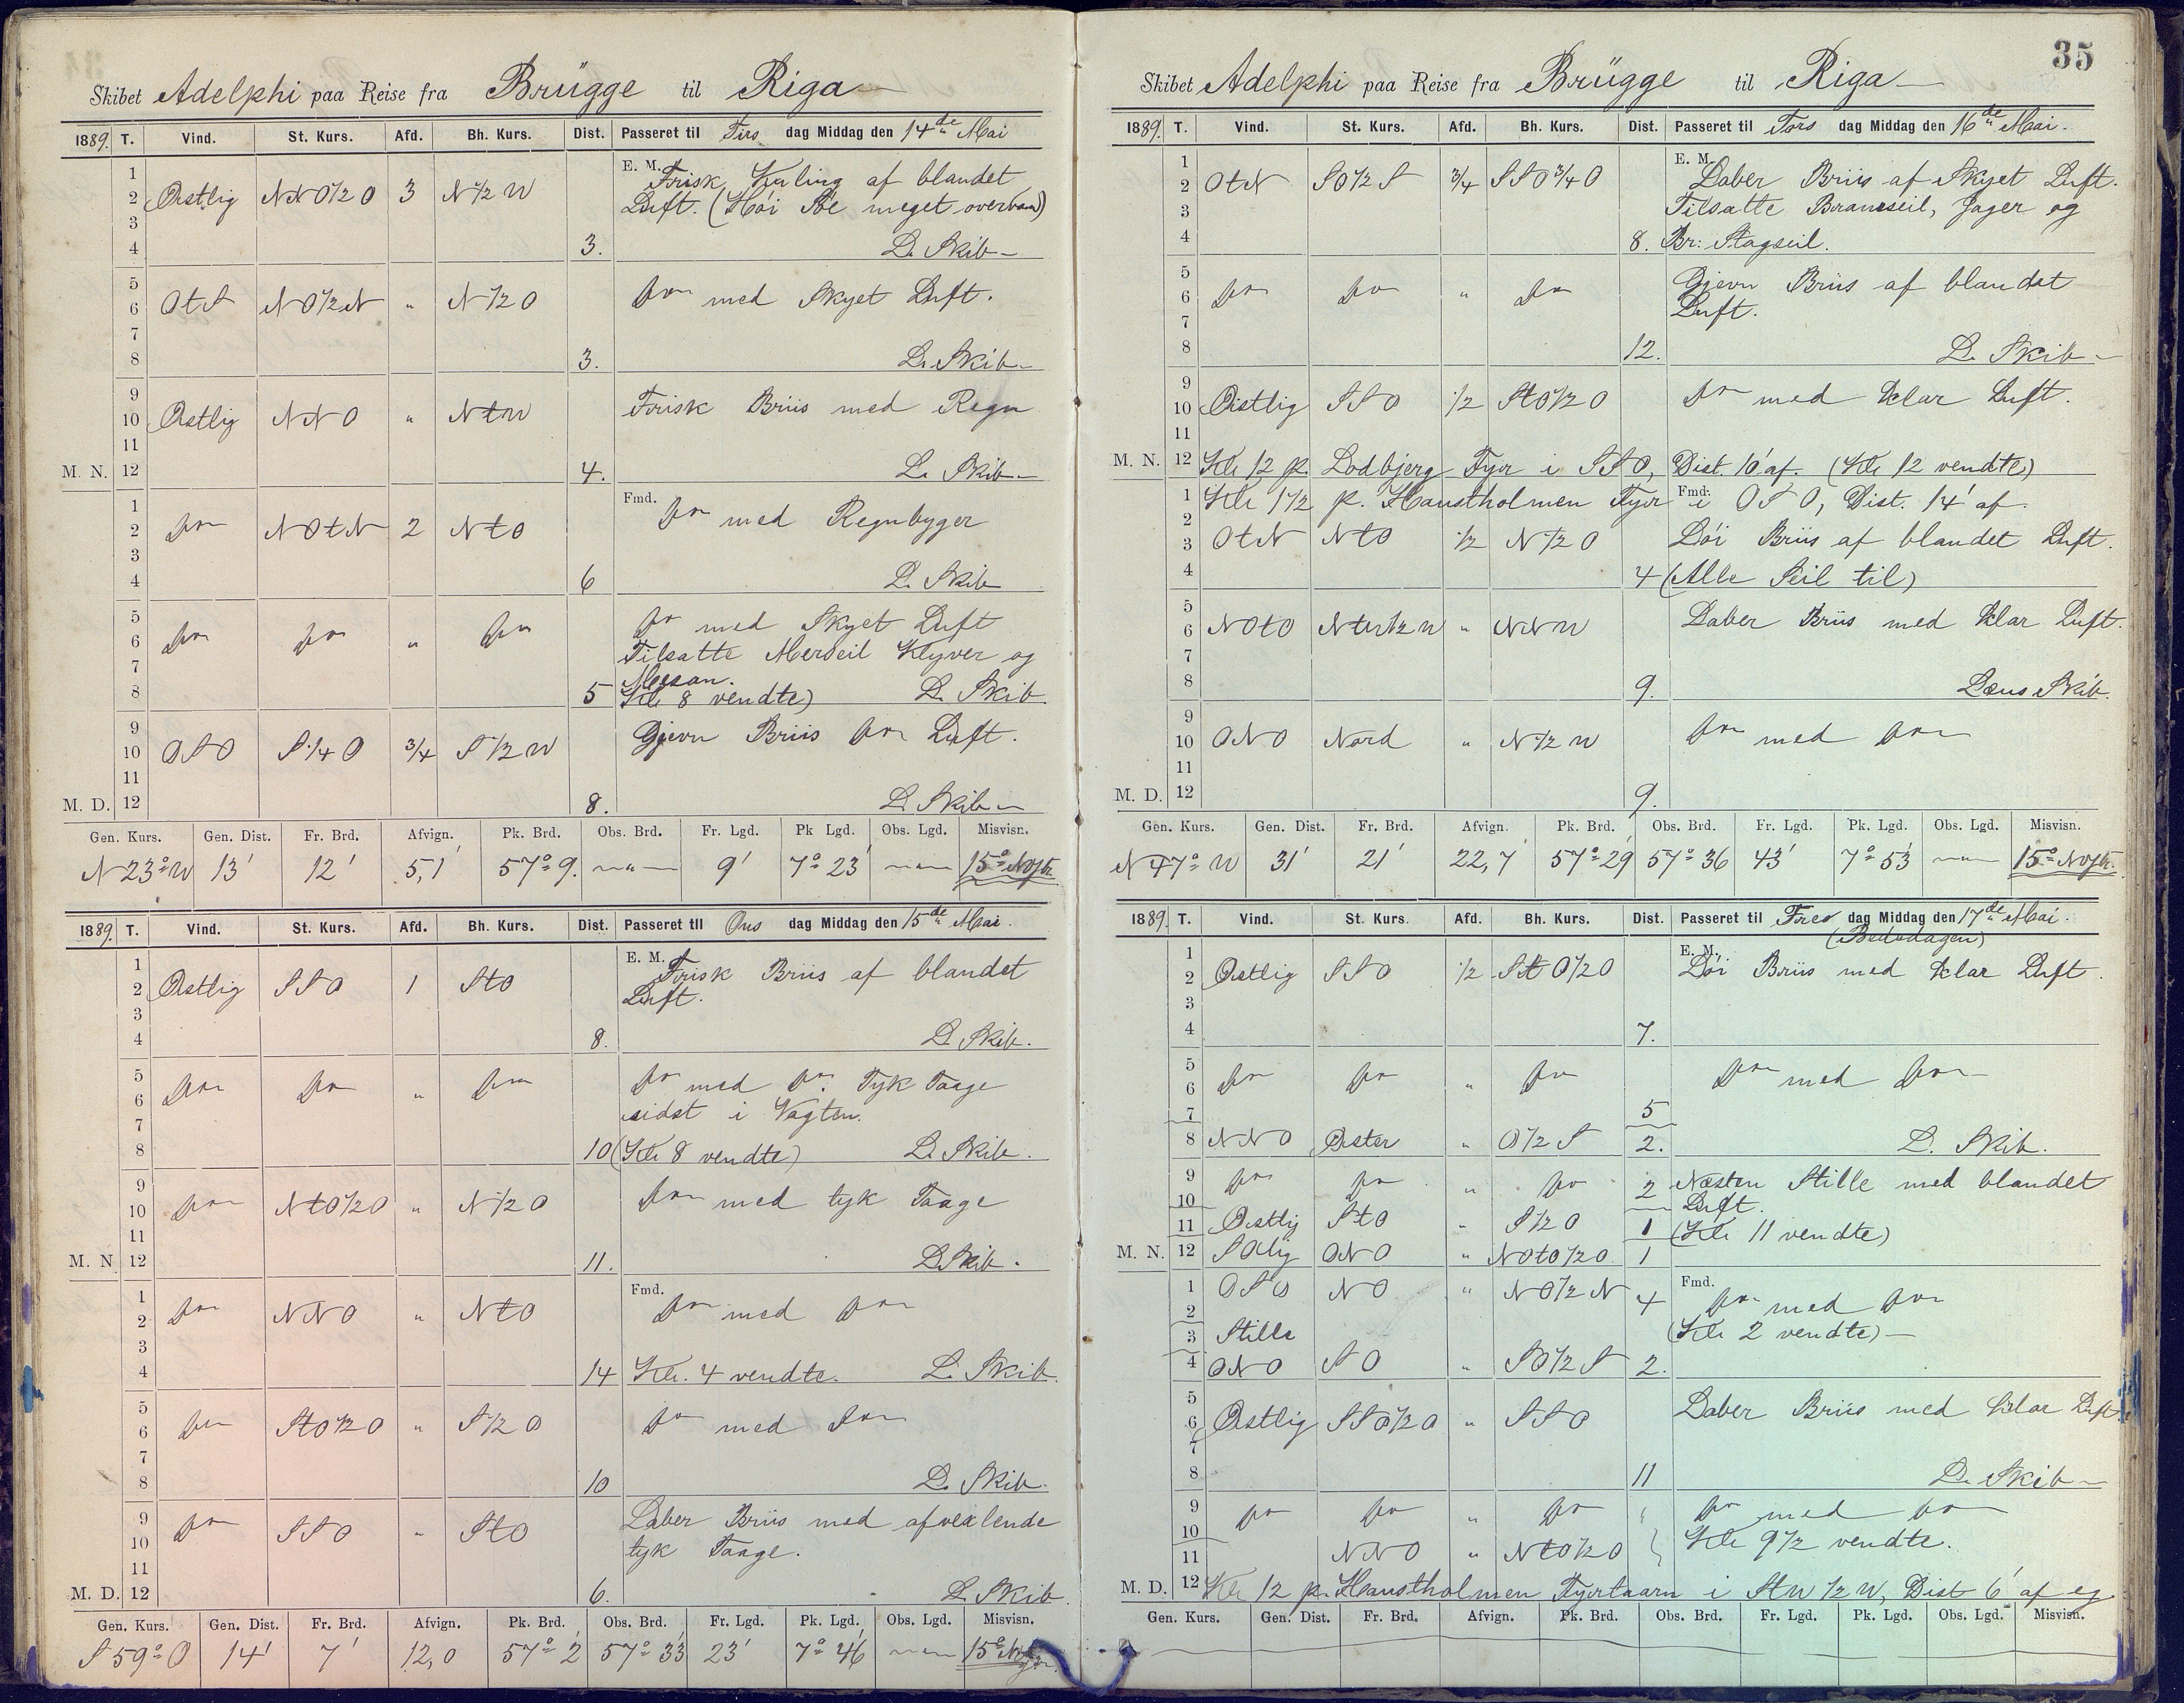 Skibet Adelphi paa Reise fra Brügge til Riga
1889. T. Vind. St. Kurs. Afd. Bh. Kurs. Dist. Passeret til Tirs dag Middag den 14de Mai
1
2 Østlig NNO½O 3 N½W E. M. Frisk Kuling af blandet
3 Luft. (Høi Sø meget overvand)
4 3. L. Skib
5
6 OtS NO½N " N½O do med Skyet Luft.
7
8 3. L. Skib
9
10 Østlig NNO " NtW Frisk Briis med Regn
11
M. N. 12 4. L. Skib
1 Fmd.
2 do NOtN 2 NtO do med Regnbyger
3
4 6 L. Skib
5
6 do do " do do med Skyet Luft
7 Tilsatte Merseil Klyver og
Mesan.
8 5 Kl. 8 vendte) L. Skib
9
10 OSO S¼O ¾ S½W Gjevn Briis do Luft.
11
M. D. 12 8. L. Skib
Gen. Kurs. Gen. Dist. Fr. Brd. Afvign. Pk. Brd. Obs. Brd. Fr. Lgd. Pk Lgd. Obs. Lgd. Misvisn.
N 23° W 13' 12' 5,1 57° 9. " 9' 7° 23' " 15° NVstr.
1889. T. Vind. St. Kurs. Afd. Bh. Kurs. Dist. Passeret til Ons dag Middag den 15de Mai.
1 E. M.
2 Østlig SSO 1 StO Frisk Briis af blandet
3 Luft.
4 8. L. Skib.
5
6 do do " do do med do. Tyk Taage
7 sidst i Vagten.
8 10 (Kl. 8 vendte) L. Skib.
9
10 do NtO½O " N½O do med tyk Taage
11
M. N 12 11. L Skib.
1 Fmd.
2 do NNO " NtO do med do
3
4 14 Kl. 4 vendte. L. Skib.
5
6 do StO½O " S½O do med do
7
8 10 L. Skib.
9
10 do SSO " StO Laber Briis med afvexlende
11 tyk Taage.
M. D. 12 6. L. Skib.
Gen. Kurs. Gen. Dist. Fr. Brd. Afvign. Pk. Brd. Obs. Brd. Fr. Lgd. Pk. Lgd. Obs. Lgd. Misvisn.
S 59° O 14' 7' 12,0 57° 2' 57° 33' 23' 7° 46' " 15°
35
Skibet Adelphi paa Reise fra Brügge til Riga
1889. T. Vind. St. Kurs. Afd. Bh. Kurs. Dist. Passeret til Tors dag Middag den 16de Mai.
1 E. M.
2 OtN SO½S ¾ SSO¾O Laber Briis af Skyet Luft.
3 Tilsatte Bramseil, Jager og
4 8. Br: Stagseil.
5
6 do do " do Gjevn Briis af blandet
7 Luft.
8 12. L. Skib
9
10 Østlig SSO ½ StO½O do med klar Luft.
11
M. N. 12 Kl. 12 p. Lodbjerg Fyr i SSO, Dist. 10' af. (Kl. 12 vendte)
1 Kl 1½ p. Hanstholmen Fyr Fmd. i OSO, Dist. 14' af.
2
3 OtN NtO ½ N½O Løi Briis af blandet Luft.
4 4 (Alle Seil til)
5
6 NOtO NtW½W " NNW Laber Briis med klar Luft.
7
8 9. Læns Skib.
9
10 ONO Nord " N½W do med do
11
M. D. 12 9.
Gen. Kurs. Gen. Dist. Fr. Brd. Afvign. Pk. Brd. Obs. Brd. Fr. Lgd. Pk. Lgd. Obs. Lgd. Misvisn.
N 47° W 31' 21' 22,7 57° 29' 57° 36 43' 7° 53' " 15° NVstr.
1889. T. Vind. St. Kurs. Afd. Bh. Kurs. Dist. Passeret til Fre dag Middag den 17de Mai.
(Bededagen)
1 E. M.
2 Østlig SSO ½ StO½O Løi Briis med klar Luft.
3
4 7.
5
6 do do " do do med do
7 5
8 NNO Øster " O½S 2. L. Skib.
9 do do " do 2 Næsten Stille med blandet
10 Luft.
11 Østlig StO " S½O 1 (Kl. 11 vendte)
M. N. 12 SOlig ONO " NOtO½O. 1
1 OSO NO " NO½N 4 Fmd. do med do
2 (Kl. 2 vendte)
3 Stille
4 ONO SO " SO½S 2.
5
6 Østlig SSO½O " SSO Laber Briis med klar Luft.
7
8 11 L. Skib
9 do do " do " do med do
10 Kl. 9½ vendte.
11 NNO " NtO½O
M. D. 12 Kl. 12 p. Hanstholmen Fyrtaarn i StW½W, Dist 6' af eg.
Gen. Kurs. Gen. Dist. Fr. Brd. Afvign. Pk. Brd. Obs. Brd. Fr. Lgd. Pk. Lgd. Obs. Lgd. Misvisn.